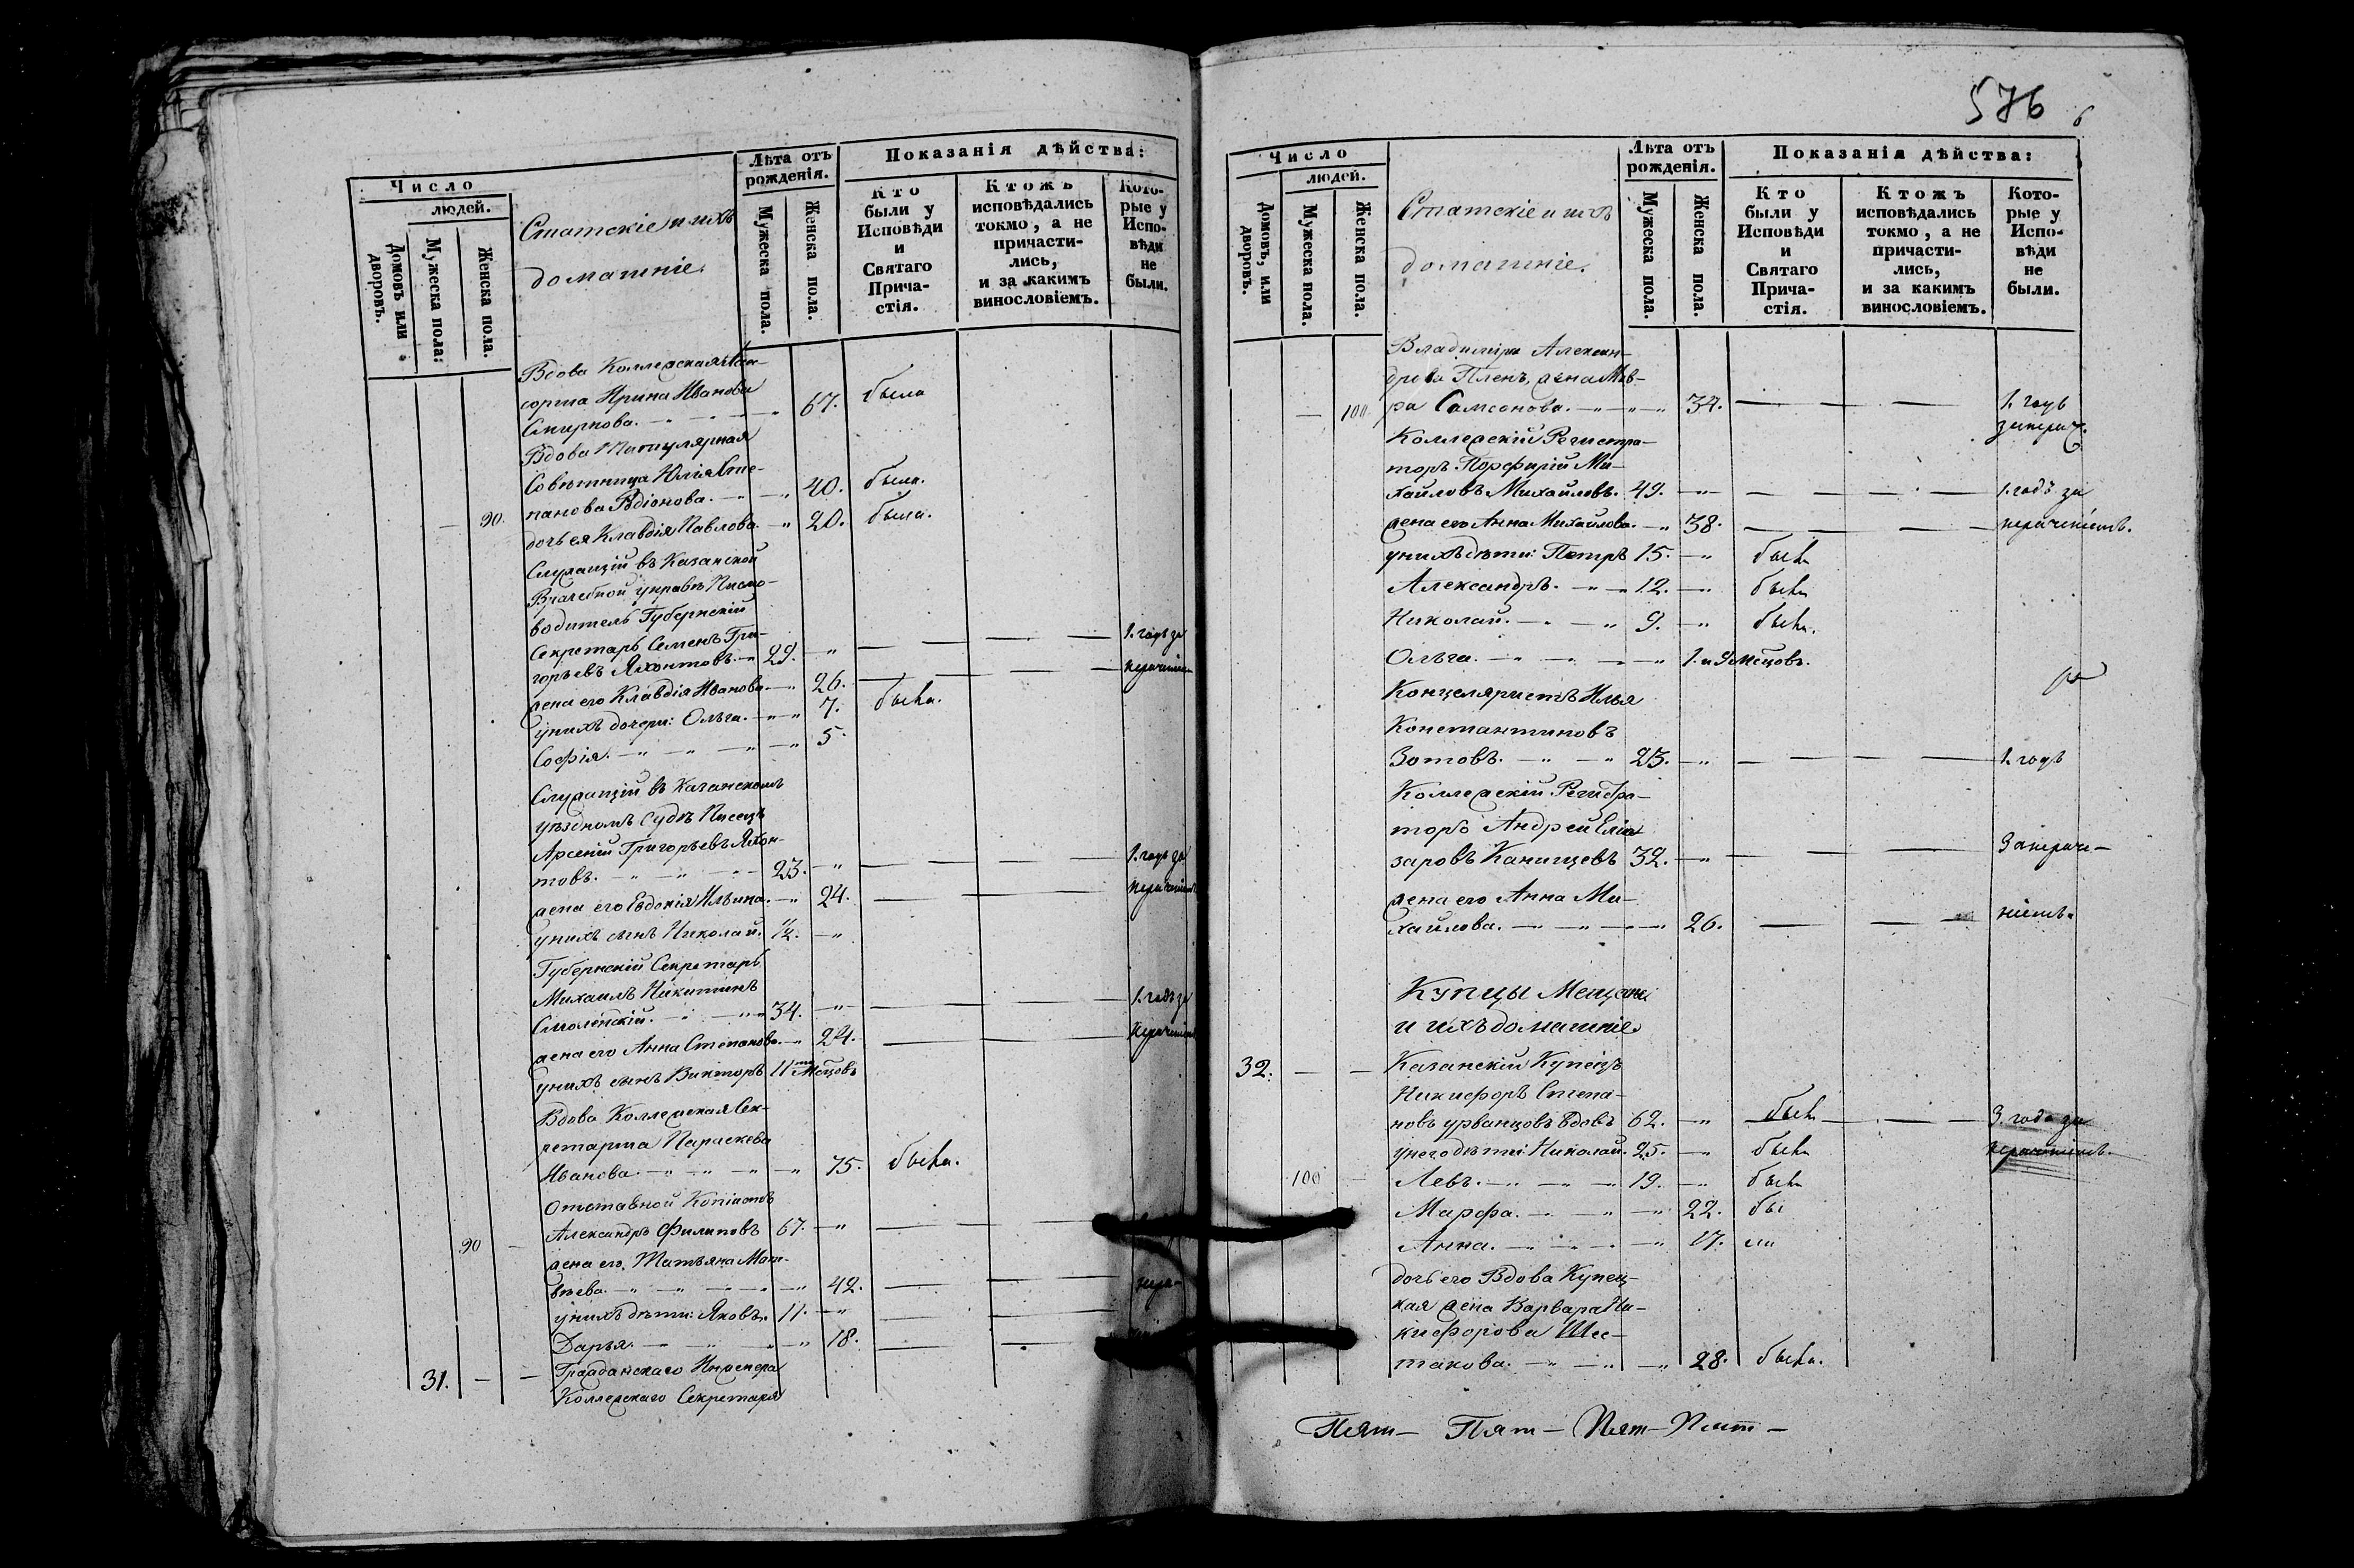 Число
людей.
Домовъ или дворовъ.
Мужеска пола:
Женска пола.
Статскіе и ихъ
домашніе.
Лѣта отъ рожденія.
Мужеска пола.
Женска пола.
Показанія дѣйства:
Кто были у Исповѣди и Святаго Причастія.
Ктожъ исповѣдались токмо, а не причастились, и за какимъ винословіемъ.
Которые у Исповѣди не были.
Вдова Коллежская
Ирина Иванова
Смирнова. 67. была
Вдова Титулярная
Совѣтница Юлія Сте-
панова 40. была.
90. дочь ея Клавдія Павлова. 20. была.
Служащій въ Казанской
Врачебной управѣ Письмо-
водитель Губернскій
Секретарь Семенъ Гри-
горьевъ Яхонтовъ. 29. 1. годъ за
жена его Клавдія Иванова. 26.
у нихъ дочери: Ольга. 7. была.
Софія. 5.
Служащій въ Казанскомъ
уѣздномъ Судѣ Писецъ
Арсеній Григорьевъ Яхон-
товъ. 23. 1. годъ за
жена его Евдокія Ильина. 24.
у нихъ сынъ Николай. 1/2.
Губернскій Секретарь
Михаилъ Никитинъ
Смоленскій. 34. 1. годъ за
жена его Анна Степанова. 24.
у нихъ сынъ Викторъ 11 мѣсцовъ
Вдова Коллежская Сек-
ретарша Параскева
Иванова. 75. была.
Отставной Копіистъ
90 Александръ Филиповъ 67.
жена его Татьяна Мат-
вѣева. 42.
у нихъ дѣти: Яковъ. 11.
Дарья. 18.
31. Гражданскаго Инженера
Коллежскаго Секретаря
576
6
Число
людей.
Домовъ, или дворовъ.
Мужеска пола.
Женска пола.
Статскіе и ихъ
домашніе.
Лѣта отъ рожденія.
Мужеска пола.
Женска пола.
Показанія дѣйства:
Кто были у Исповѣди и Святаго Причастія.
Ктожъ исповѣдались токмо, а не причастились, и за какимъ винословіемъ.
Которые у Исповѣди не были.
Владиміра Алексан-
дрова жена Мав-
100. ра Самсонова. 34. 1. годъ
Коллежскій Регистра-
торъ Порфирій Ми-
хайловъ Михайловъ. 49. 1. годъ за
жена его Анна Михайлова. 38. нераченіемъ.
у нихъ дѣти: Петръ 15. былъ
Александръ. 12. былъ
Николай. 9. былъ.
Ольга. 1. и 9 мѣсцовъ.
Канцеляристъ Илья
Константиновъ
Зотовъ. 23. 1. годъ
Коллежскій Регистра-
торъ Андрей Елиа-
заровъ Канищевъ 32. За нераче-
жена его Анна Ми-
хайлова. 26. ніемъ.
Купцы Мещане
и ихъ домашніе
32. Казанскій Купецъ
Никифоръ Степа-
новъ Урванцовъ вдовъ 62. былъ 3. года за
у него дѣти: Николай. 25. былъ нераченіемъ.
100 Левъ. 19. былъ
Марфа. 22. бы
Анна. 17. ли
дочь его Вдова Купец-
кая жена Варвара Ни-
кифорова Шес-
такова. 28. была.
Пят— Пят— Пят— Пят—